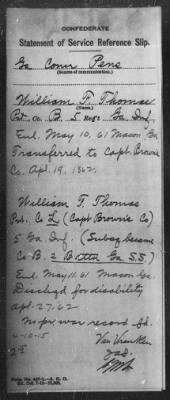 CONFEDERATE
Statement of Service Reference Slip.
Ga Comr Pens
(Source of communication.)
William T. Thomas
(Name.)
Pvt Co. B. 5 Reg't Ga Inf
Enl. May 10, 61 Macon Ga
Transferred to Capt Browns
Co. Apr. 19, 1862.
William T. Thomas
Pvt. Co L (Capt Browns Co)
5 Ga Inf. (Subsq became
Co B. 2 Battn Ga S.S.)
Enl. May 11, 61 Macon Ga
Dischgd for disability
Apr. 27, 62
No pr. war record fd.
4-10-15